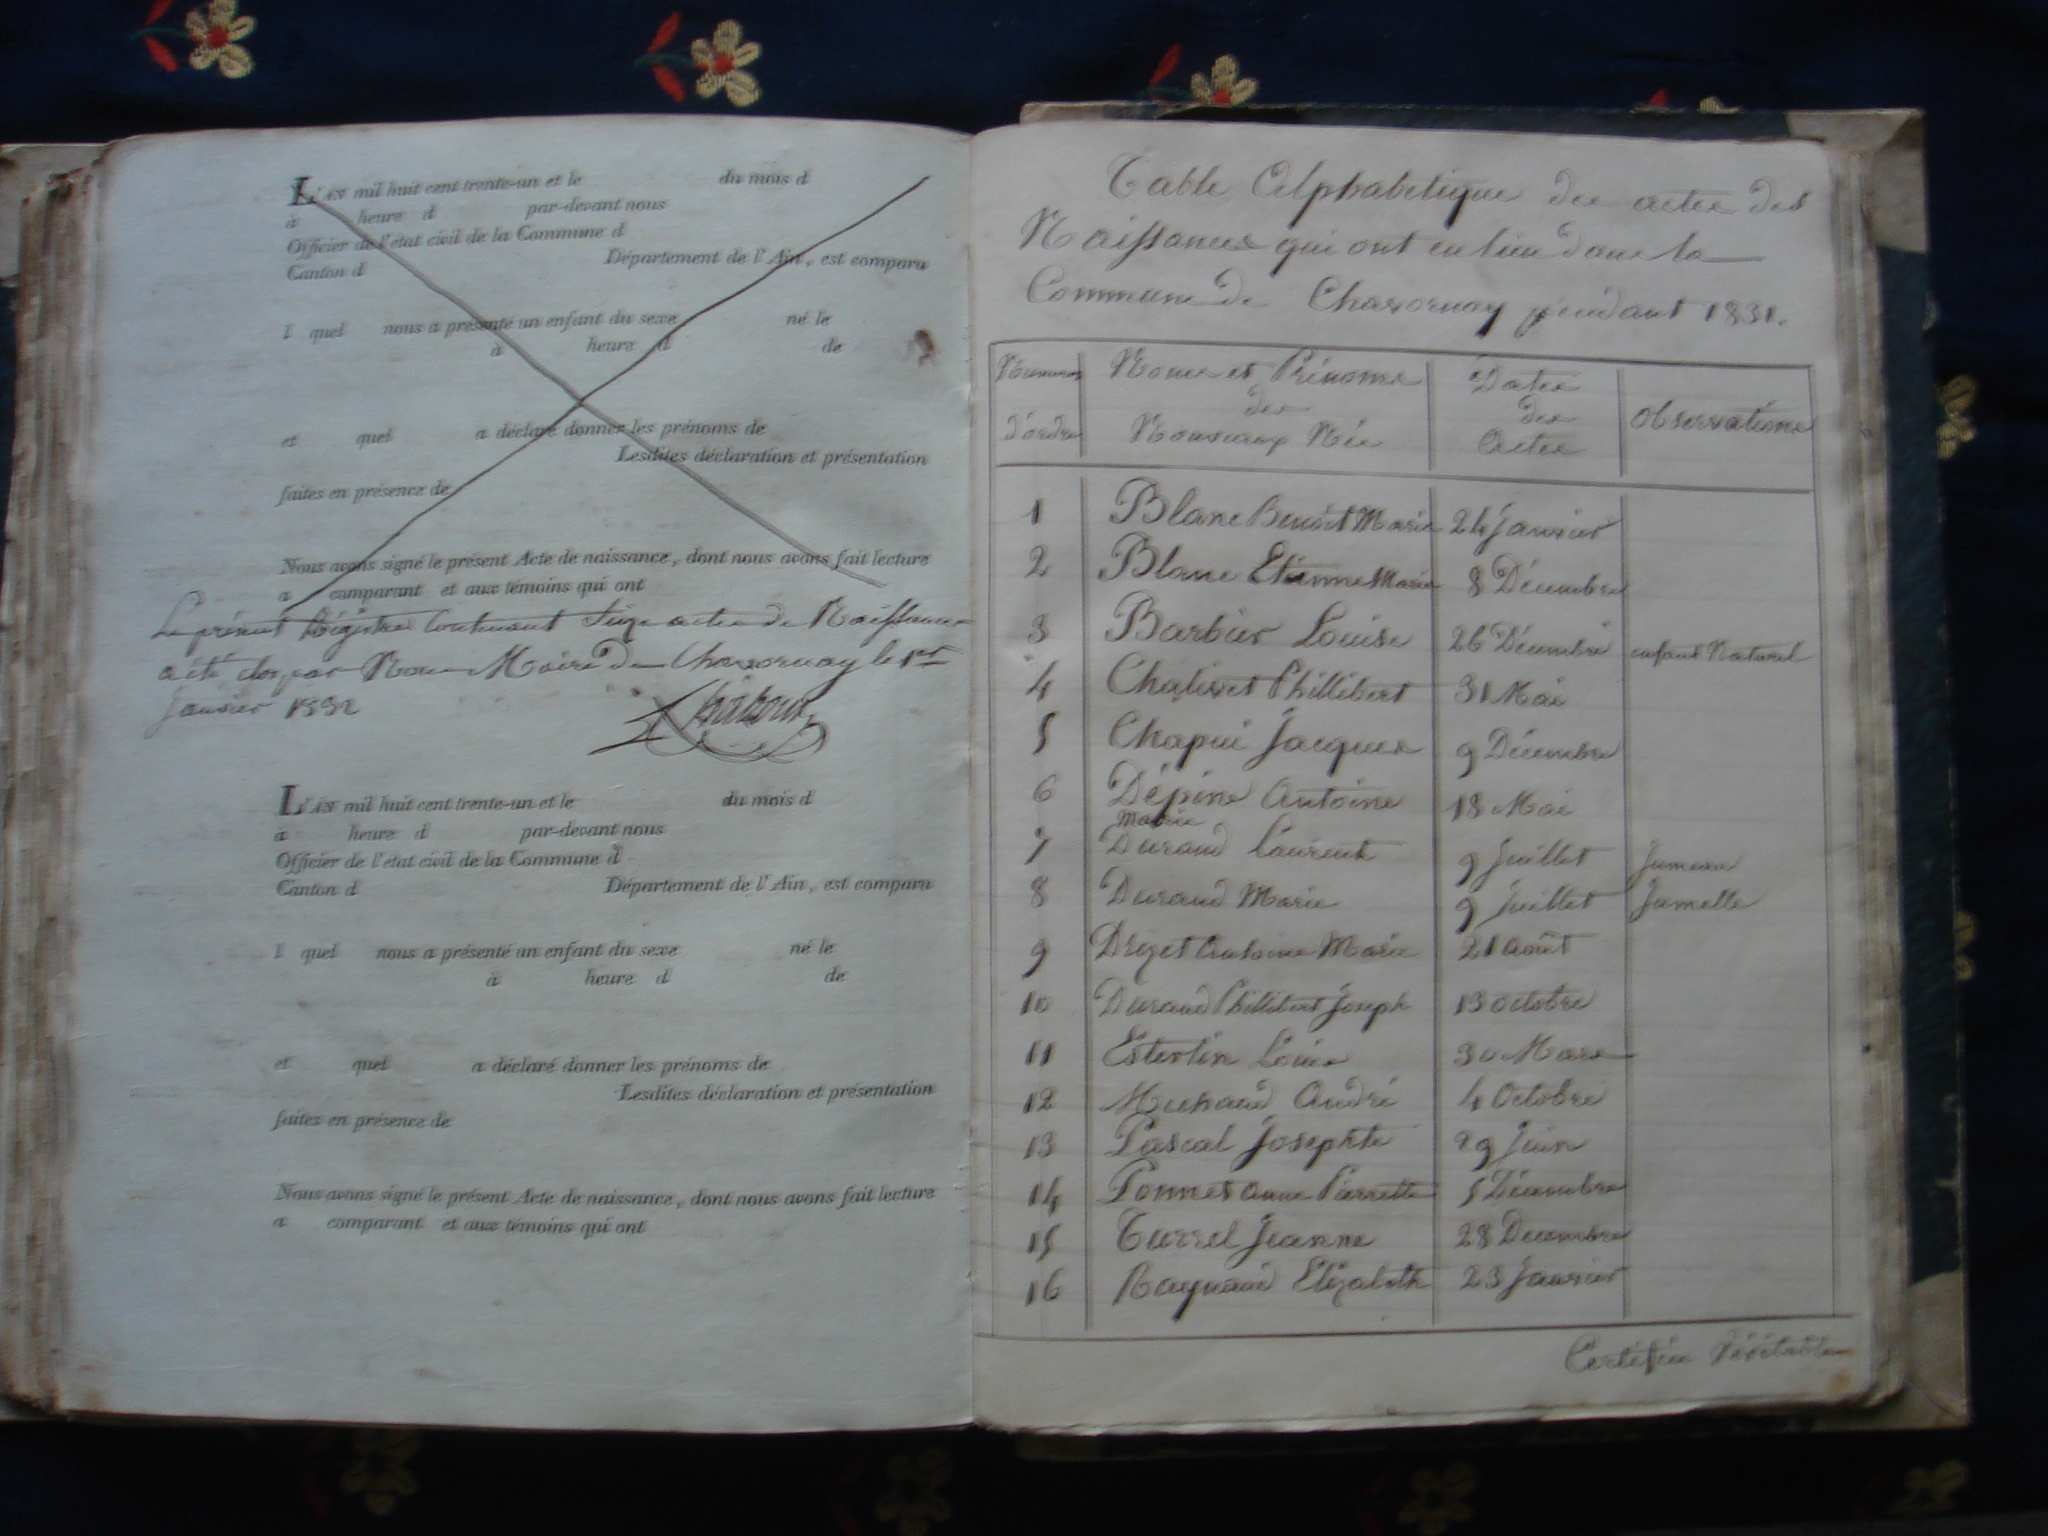 L'AN mil huit cent trente-un et le du mois d
à heure d par-devant nous
Officier de l'état civil de la Commune d
Canton d Département de l'Ain, est comparu
l quel nous a présenté un enfant du sexe né le
à heure d de
et quel a déclaré donner les prénoms de
Lesdites déclaration et présentation
faites en présence de
Nous avons signé le présent Acte de naissance, dont nous avons fait lecture
a comparant et aux témoins qui ont
Le présent Régistre Contenant Seize actes de Naissances
a été clos par Nous Maire de Chavornay le 1er
Janvier 1832
L'AN mil huit cent trente-un et le du mois d
à heure d par-devant nous
Officier de l'état civil de la Commune d
Canton d Département de l'Ain, est comparu
l quel nous a présenté un enfant du sexe né le
à heure d de
et quel a déclaré donner les prénoms de
Lesdites déclaration et présentation
faites en présence de
Nous avons signé le présent Acte de naissance, dont nous avons fait lecture
a comparant et aux témoins qui ont
Table Alphabetique des actes des
Naissances qui ont eu lieu dans la
Commune de Chavornay pendant 1831.
Numeros d'ordre Noms et Prénoms des Nouveaux Nés Dates des Actes Observations
1 Blanc Benoit Marie 24 Janvier
2 Blanc Etienne Marie 8 Décembre
3 Barbier Louise 26 Décembre enfant Naturel
4 Phillibert 31 Mai
5 Chapui Jacques 9 Décembre
6 Dépine Antoine 18 Mai
Marie
7 Durand Laurent 9 Juillet Jumeau
8 Durand Marie 9 Juillet Jumelle
9 Drizet Antoine Marie 21 Août
10 Durand Phillibert Joseph 13 octobre
11 Estertin Louis 30 Mars
12 André 4 Octobre
13 Pascal Josephte 29 Juin
14 Ponnet Anne Pierrette 5 Décembre
15 Turrel Jeanne 28 Decembre
16 Raynaud Elizabeth 23 Janvier
Certifiée Véritable